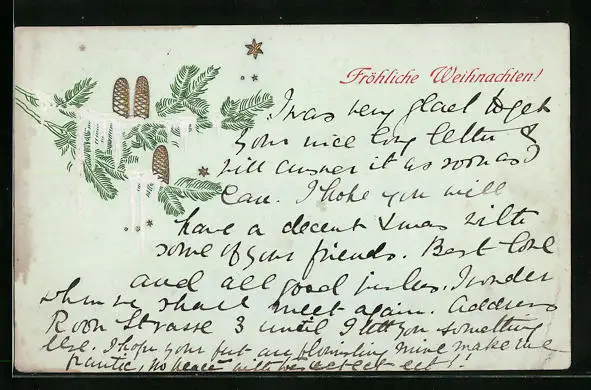 Fröhliche Weihnachten!
I was very glad to get
your nice long letter &
will answer it as soon as I
can. I hope you will
have a decent Xmas with
some of your friends. Best love
and all good wishes. I wonder
when we shall meet again. Address
Roon Strasse 3 until I tell you something
else. I hope your feet are flourishing mine make me
frantic, no peace with